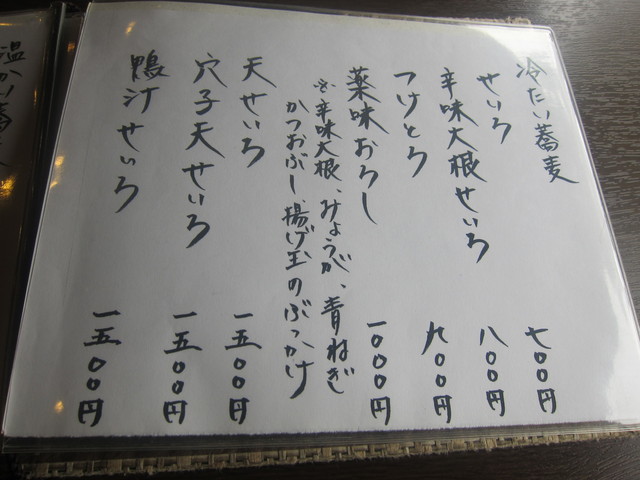 冷たい蕎麦
せいろ 七〇〇円
辛味大根せいろ 八〇〇円
つけとろ 九〇〇円
薬味おろし 一〇〇〇円
※辛味大根、みょうが、青ねぎ
かつおぶし、揚げ玉のぶっかけ
天せいろ 一五〇〇円
穴子天せいろ 一五〇〇円
鴨汁せいろ 一五〇〇円
温かい蕎麦